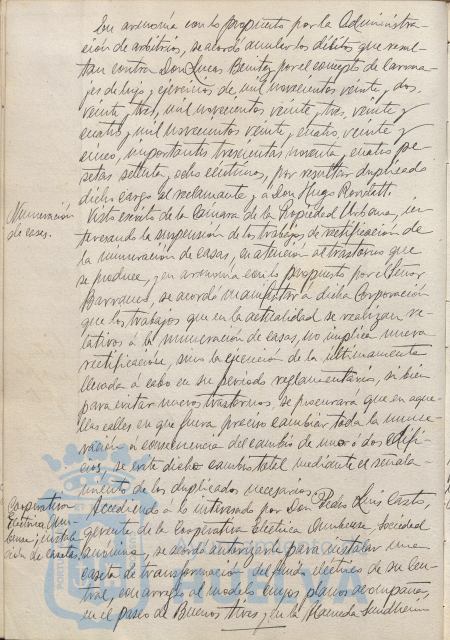 En armonía con lo propuesto por la Administra-
ción de arbitrios, se acordó anular los débitos que resul-
tan contra Don Lucas Benitez por el concepto de carrua-
jes de lujo, ejercicios de mil novecientos veinte y dos
veinte y tres, mil novecientos veinte y tres, veinte y
cuatro, y mil novecientos veinte y cuatro, veinte y
cinco, importantes trescientas noventa y cuatro pe-
setas setenta y ocho céntimos, por resultar duplicado
dicho cargo al reclamante, y a Don Hugo
Numeración
de casas.
Visto escrito de la Cámara de la Propiedad Urbana, in-
teresando la suspensión de los trabajos de rectificación de
la numeración de casas, en atención al trastorno que
se produce, y en armonía con lo propuesto por el Señor
Barranco, se acordó manifestar a dicha Corporación
que los trabajos que en la actualidad se realizan re-
lativos á la numeración de casas, no implica nueva
rectificación, sino la ejecución de la últimamente
llevada á cabo en su periodo reglamentario, si bien
para evitar nuevos trastornos, se procurará que en aque-
llas calles en que fuera preciso cambiar toda la nume-
ración á consecuencia del cambio de uno ó dos edifi-
cios, se evite dicho cambio total mediante el señala-
miento de los duplicados necesarios.
Cooperativa
Eléctrica Onu-
bense; instala
ción de casetas.
Accediendo a lo interesado por Don Pedro Luis Casto,
gerente de la Cooperativa Eléctrica Onubense, Sociedad
anónima, se acordó autorizarle para instalar una
caseta de transformación del fluido eléctrico de su Cen-
tral, con arreglo al modelo cuyos planos acompañan,
en el paseo de Buenos Aires, y en la Alameda Sundheim